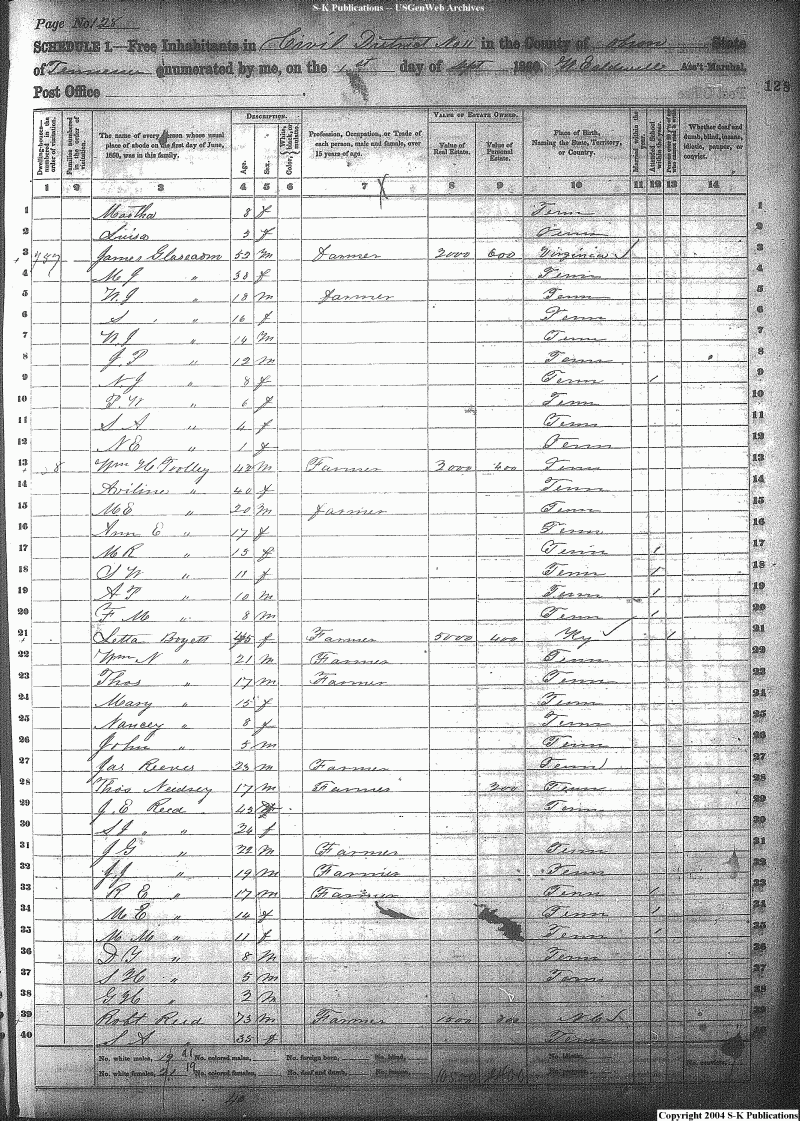 S-K Publications -- USGenWeb Archives
Page No. 128
SCHEDULE 1.—Free Inhabitants in Civil District No 11 in the County of Obion State
of Tennessee enumerated by me, on the 1st day of Sept 1860 Ass't Marshal.
Post Office 128
Dwelling-houses—numbered in the order of visitation. Families numbered in the order of visitation. The name of every person whose usual place of abode on the first day of June, 1860, was in this family. DESCRIPTION. Age. Sex. Color, White, black, or mulatto. Profession, Occupation, or Trade of each person, male and female, over 15 years of age. VALUE OF ESTATE OWNED. Value of Real Estate. Value of Personal Estate. Place of Birth, Naming the State, Territory, or Country. Married within the year. Attended School within the year. Whether deaf and dumb, blind, insane, idiotic, pauper, or convict.
1 2 3 4 5 6 7 8 9 10 11 12 13 14
1 Martha 8 f Tenn 1
2 Luisa f Tenn 2
3 757 James Glascom 52 m Farmer 2000 600 Virginia 3
4 M J " 38 f Tenn 4
5 W J " 18 m Farmer Tenn 5
6 S " 16 f Tenn 6
7 W J " 14 m Tenn 7
8 J P " 12 m Tenn 8
9 N J " 8 f Tenn 1 9
10 " 6 f Tenn 10
11 S A " 4 f Tenn 11
12 N E " 1 f Tenn 12
13 8 Wm H Toolley 42 m Farmer 3000 400 Tenn 13
14 Aviline " 40 f Tenn 14
15 M E " 20 m Farmer Tenn 15
16 Ann E " 17 f Tenn 16
17 M R " 13 f Tenn 1 17
18 S W " 11 f Tenn 1 18
19 A P " 10 m Tenn 1 19
20 F M " 8 m Tenn 1 20
21 Letta Boyett 45 f Farmer 5000 400 Ky 1 21
22 Wm N " 21 m Farmer Tenn 22
23 Thos " 17 m Farmer Tenn 23
24 Mary " 15 f Tenn 24
25 Nancey " 8 f Tenn 25
26 John " 5 m Tenn 26
27 Jas Reeves 23 m Farmer Tenn 27
28 Thos Needsey 17 m Farmer 200 Tenn 28
29 J. E Reed 42 Tenn 29
30 S J " " 24 f 30
31 J G " 22 m Farmer Tenn 31
32 J J " 19 m Farmer Tenn 32
33 R E " 17 m Farmer Tenn 1 33
34 M E " 14 f Tenn 1 34
35 M M " 11 f Tenn 1 35
36 D Y " 8 m Tenn 36
37 S H " 5 m Tenn 37
38 G H " 2 m 38
39 Robt Reed 73 m Farmer N C 39
40 S A " 35 f Tenn 40
No. white males, 19 21 No. colored males, No. foreign born, No. blind, No. idiotic, No. convicts,
No. white females, 21 19 No. colored females, No. deaf and dumb, No. insane, No. paupers,
Copyright 2004 S-K Publications